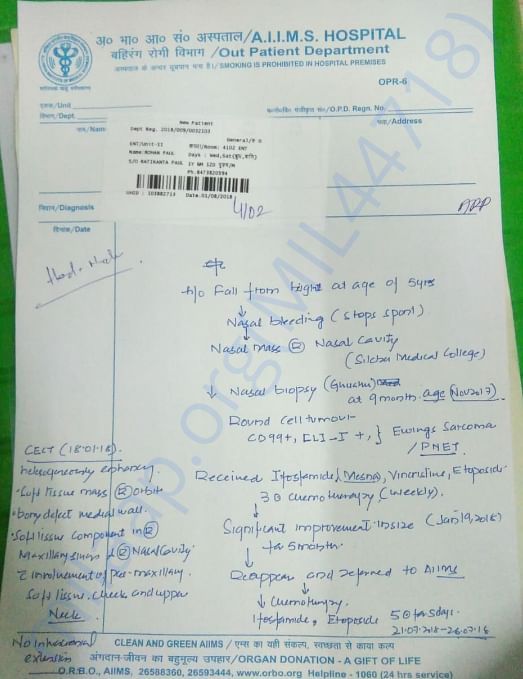 अ० भा० आ० सं० अस्पताल/A.I.I.M.S. HOSPITAL
बहिरंग रोगी विभाग /Out Patient Department
अस्पताल के अन्दर धूम्रपान मना है।/SMOKING IS PROHIBITED IN HOSPITAL PREMISES
OPR-6
एकक/Unit
विभाग/Dept.
O.P.D. Regn. No.
नाम/Name
पता/Address
New Patient
Dept Reg. 2018/009/0032103
General/₹ 0
ENT/Unit-II
कमरा/Room: 4102 ENT
Name: ROHAN PAUL
Days : Wed,Sat
S/O RATIKANTA PAUL
1Y 9M 12D पुरुष/M
Ph.8473820594
UHID : 103882713
Date:01/08/2018
4102
निदान/Diagnosis
दिनांक/Date
Head & Neck
h/o Fall from height at age of 5yrs
Nasal bleeding (stops spont)
Nasal mass (R) Nasal cavity
(Silchar Medical College)
Nasal biopsy
at 9 month age (Nov 2017)
Round cell tumour
CD99+, FLI-I +, } Ewings Sarcoma
/PNET
Received Ifosfamide, Mesna, Vincristine, Etoposide
3 chemotherapy (weekly).
Significant improvement in size (Jan 19, 2018)
for 5 month.
Reappear and referred to AIIMS
Chemotherapy.
Ifosfamide, Etoposide 5 for 5 days.
21-07-2018-26-07-18
CECT (18-01-18).
heterogeneously enhancing
• Soft tissue mass (R) orbit
• bony defect medial wall.
• Soft tissue component in (R)
Maxillary sinus & (R) Nasal Cavity.
c involvement of Pre-maxillary
soft tissue, cheek and upper
Neck
No intracranial
extension
CLEAN AND GREEN AIIMS / एम्स का यही संकल्प, स्वच्छता से काया कल्प
अंगदान-जीवन का बहुमूल्य उपहार/ORGAN DONATION - A GIFT OF LIFE
O.R.B.O., AIIMS, 26588360, 26593444, www.orbo.org Helpline - 1060 (24 hrs service)